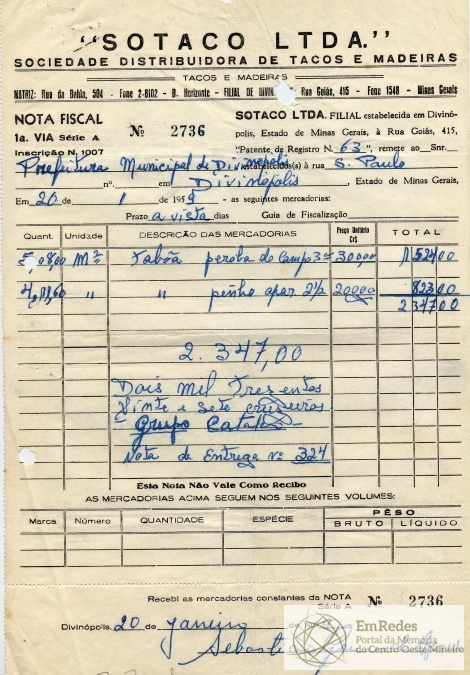 "SOTACO LTDA."
SOCIEDADE DISTRIBUIDORA DE TACOS E MADEIRAS
TACOS E MADEIRAS
MATRIZ: Rua da Bahia, 504 - Fone 2-8102 - B. Horizonte - FILIAL DE DIVIN Rua Goiás, 415 - Fone 1548 - Minas Gerais
NOTA FISCAL
1a. VIA Série A Nº 2736
Inscrição N. 1007
SOTACO LTDA. FILIAL estabelecida em Divinó-
polis, Estado de Minas Gerais, à Rua Goiás, 415,
"Patente de Registro N. 63", remete ao Snr.
Prefeitura Municipal de Divinópolis estabelecidos(a) à rua S. Paulo
nº. em Divinópolis, Estado de Minas Gerais,
Em 20 de 1 de 1959 - as seguintes mercadorias:
Prazo a vista dias Guia de Fiscalização
Quant. Unidade DESCRIÇÃO DAS MERCADORIAS Preço Unitário Cr$ TOTAL
5,08,00 M² Taboã peroba do Campo 3ª 300,00 1 524,00
4,11,60 " " pinho apar 2ª 200,00 823,00
2 347,00
2.347,00
Dois mil Tresentos
Vinte e sete cruzeiros
Grupo
Nota de Entrega Nº 324
Esta Nota Não Vale Como Recibo
AS MERCADORIAS ACIMA SEGUEM NOS SEGUINTES VOLUMES:
Marca Número QUANTIDADE ESPÉCIE PÊSO
BRUTO LÍQUIDO
Recebi as mercadorias constantes da NOTA
Série A Nº 2736
Divinópolis, 20 de janeiro de
EmRedes
Portal da Memória
do Centro-Oeste Mineiro